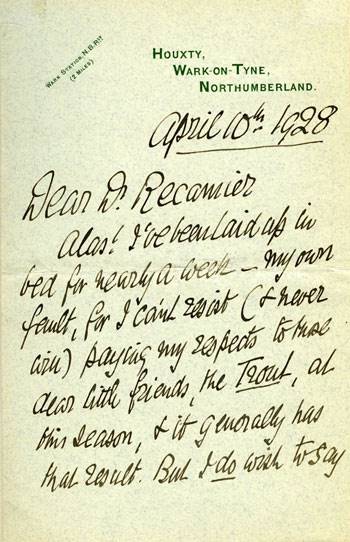 WARK STATION, N.B. RLY.
(2 MILES)
HOUXTY,
WARK-ON-TYNE,
NORTHUMBERLAND.
April 10th, 1928
Dear Dr. Recamier
Alas! I've been laid up in
bed for nearly a week – my own
fault, for I can't resist (& never
will) paying my respects to those
dear little friends, the Trout, at
this season, & it generally has
that result. But I do wish to say